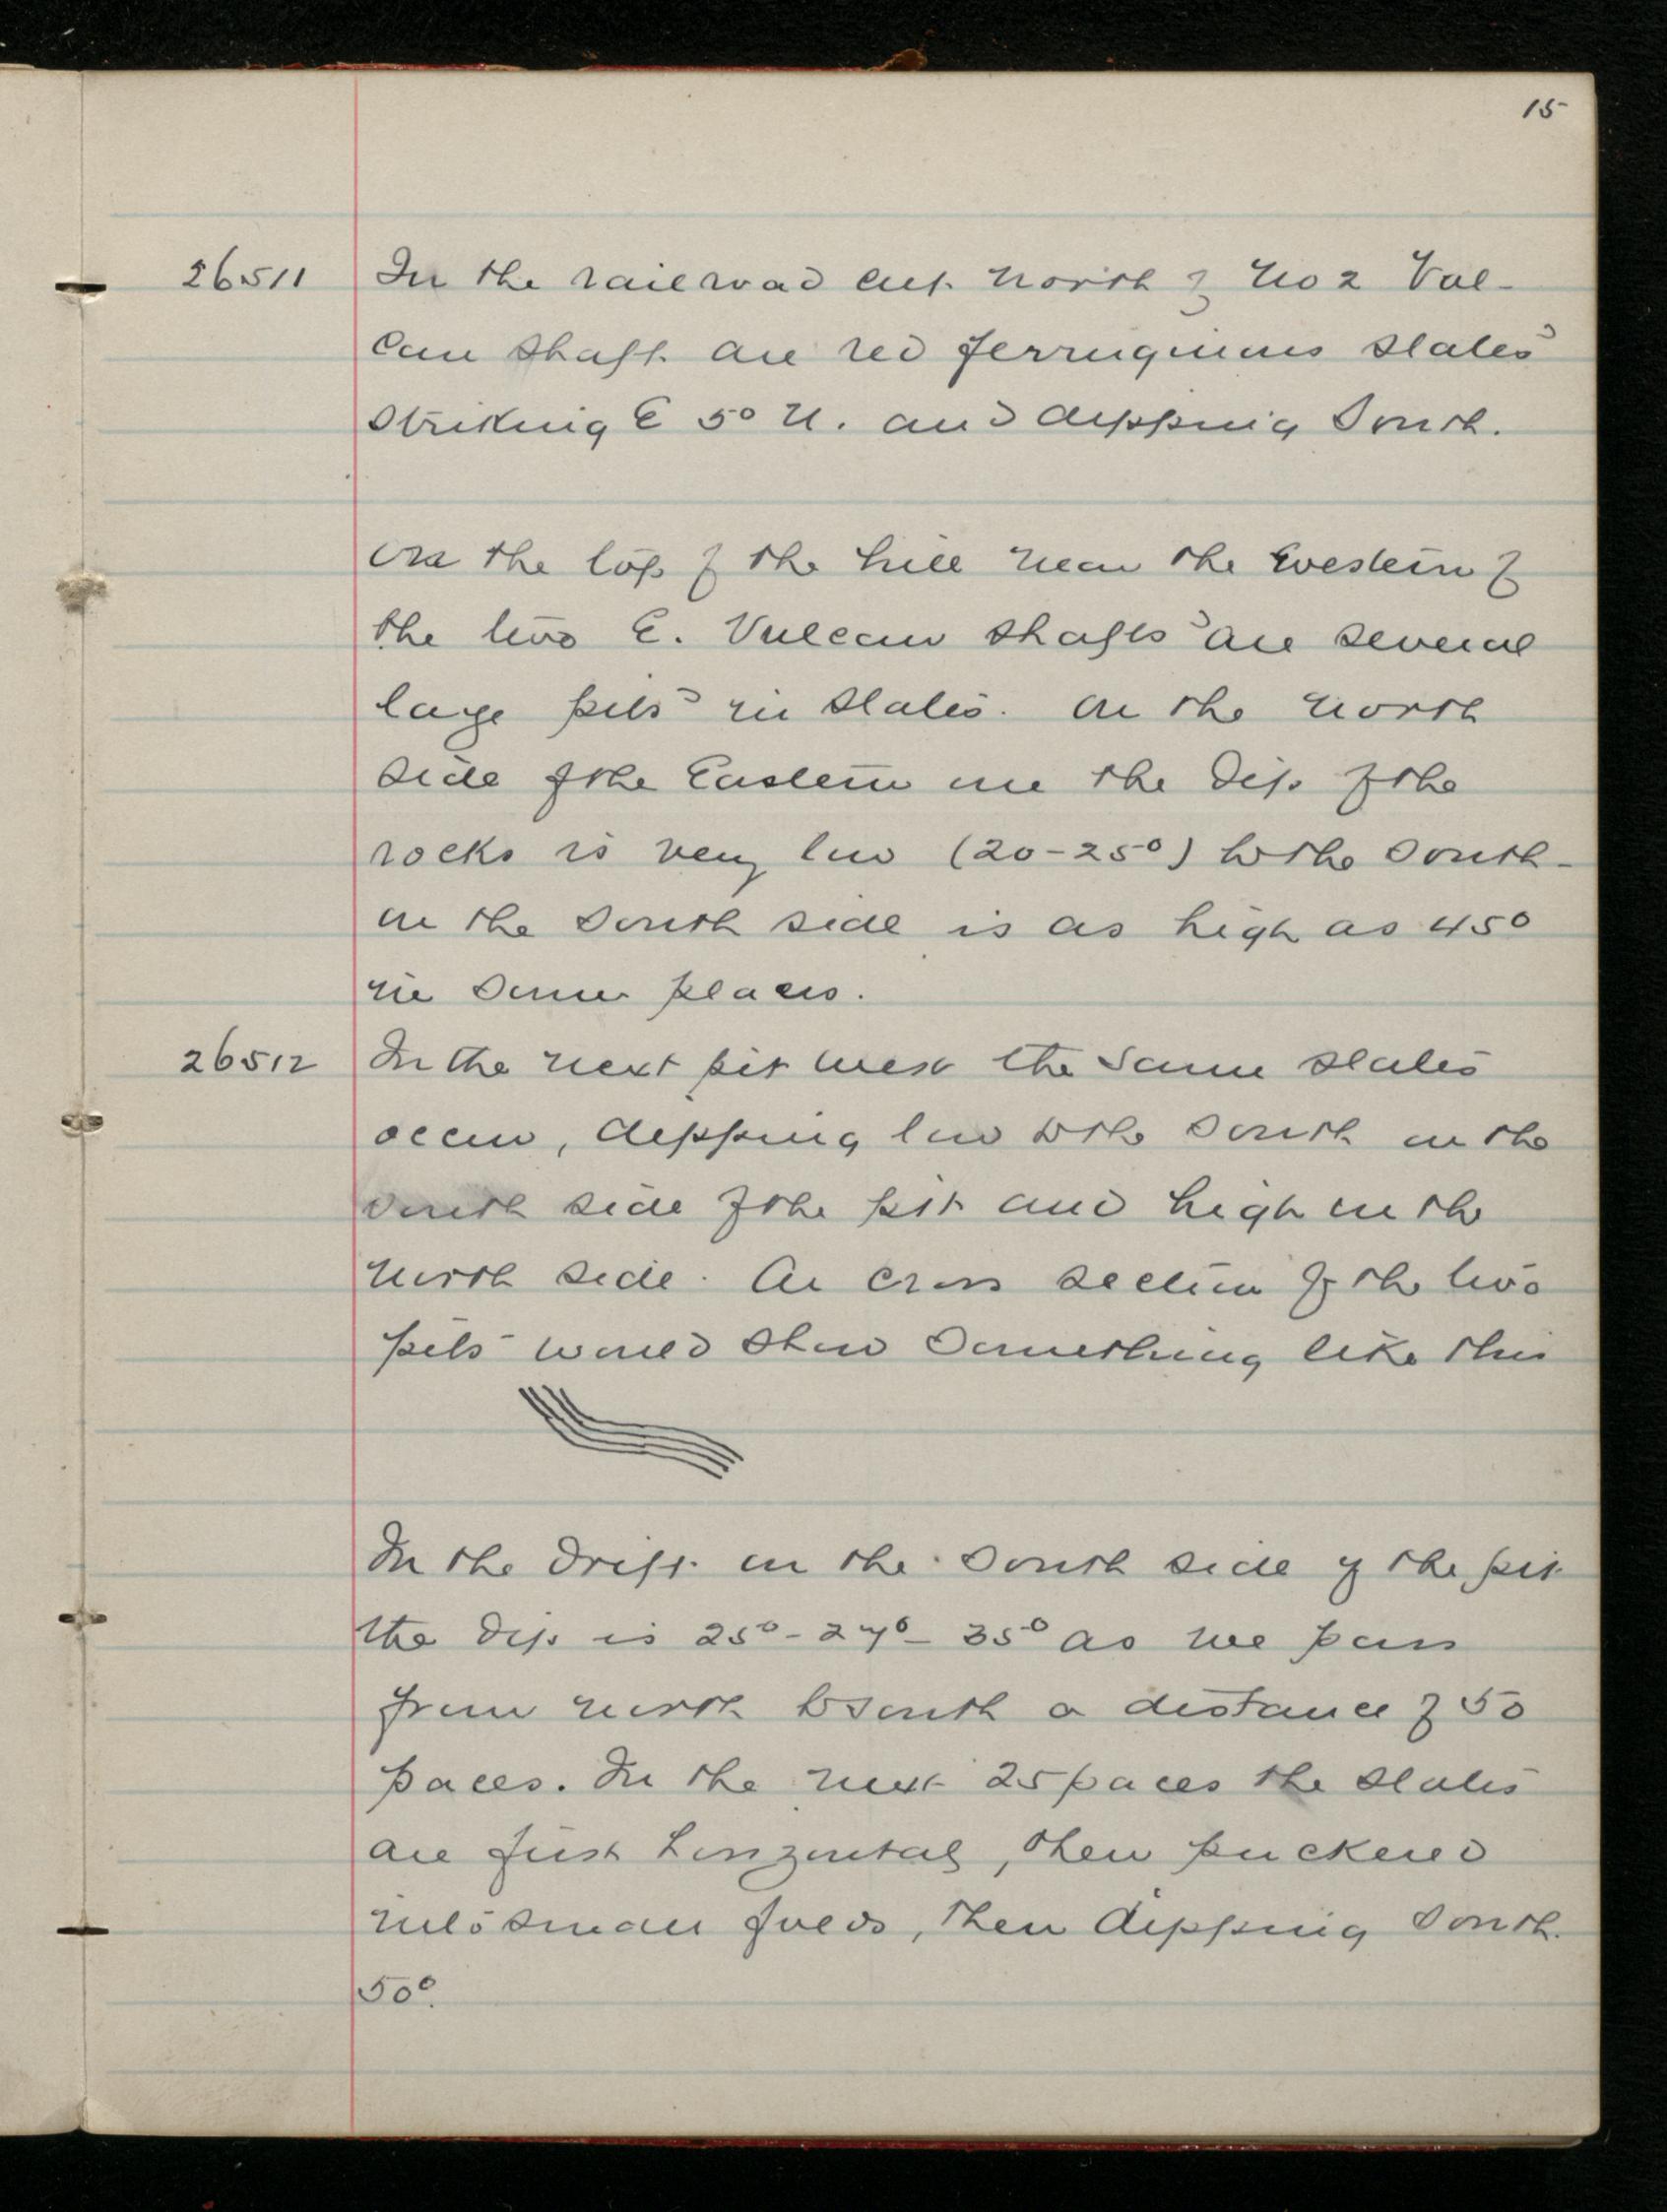 15
26511 In the railroad cut north of No 2 Vul-
can shaft are red ferruginous slates
striking E 5° N. and dipping South.
On the top of the hill near the western of
the two E. Vulcan shafts are several
large pits in slates. On the north
side of the Eastern one the dip of the
rocks is very low (20-25°) to the South -
on the South side is as high as 45°
in some places.
26512 In the next pit west the same slates
occur, dipping low to the South on the
South side of the pit and high on the
north side. A cross section of the two
pits would show something like this
In the drift on the South side of the pit
the dip is 25° - 27° - 35° as we pass
from north to south a distance of 50
paces. In the next 25 paces the slates
are first horizontal, then puckered
into small folds, then dipping South
50°.